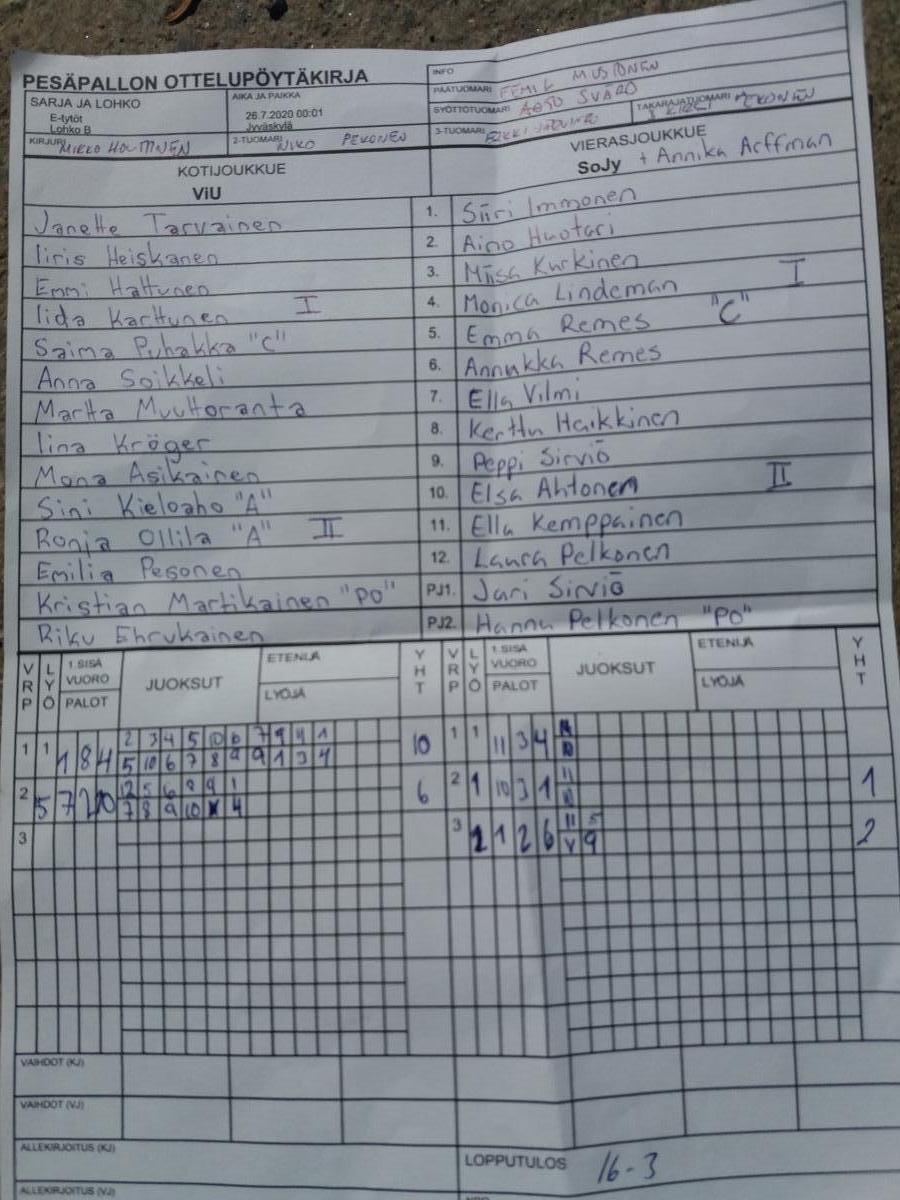 PESÄPALLON OTTELUPÖYTÄKIRJA
INFO
SARJA JA LOHKO
E-tytöt
Lohko B
AIKA JA PAIKKA
26.7.2020 00:01
Jyväskylä
PÄÄTUOMARI EEMIL MUSTONEN
SYÖTTÖTUOMARI AATO SVÄRD
TAKARAJATUOMARI PEKONEN
KIRJURI MIKKO HOLTINEN
2-TUOMARI NIKO PEKONEN
3-TUOMARI
KOTIJOUKKUE
ViU
VIERASJOUKKUE
SoJy + Annika Arffman
Janette Tarvainen 1. Siiri Immonen
Iiris Heiskanen 2. Aino Huotari
Emmi Hattunen 3. Miisa Kurkinen
Iida Karttunen I 4. Monica Lindeman I
Saima Puhakka "C" 5. Emma Remes "C"
Anna Soikkeli 6. Annukka Remes
Martta Muuttoranta 7. Ella Vilmi
Iina Kröger 8. Kerttu Haikkinen
Mona Asikainen 9. Peppi Sirviö
Sini Kieloaho "A" 10. Elsa Ahtonen II
Ronja Ollila "A" II 11. Ella Kemppainen
Emilia Pesonen 12. Laura Pelkonen
Kristian Martikainen "PO" PJ1. Jari Sirviö
Riku Ehrukainen PJ2. Hannu Pelkonen "PO"
VRP LYÖ 1.SISÄ VUORO PALOT JUOKSUT ETENIJÄ LYÖJÄ YHT VRP LYÖ 1.SISÄ VUORO PALOT JUOKSUT ETENIJÄ LYÖJÄ YHT
1 1 1 8 4 2 3 4 5 10 6 7 9 11 1 10 1 1 11 3 4
5 10 6 7 8 9 9 1 3 4
2 5 7 2 10 12 5 6 8 9 1 6 2 1 10 3 1 11 1
7 8 9 10 4
3 3 2 1 2 6 11 5 2
V 9
VAIHDOT (KJ)
VAIHDOT (VJ)
ALLEKIRJOITUS (KJ)
LOPPUTULOS 16-3
ALLEKIRJOITUS (VJ)